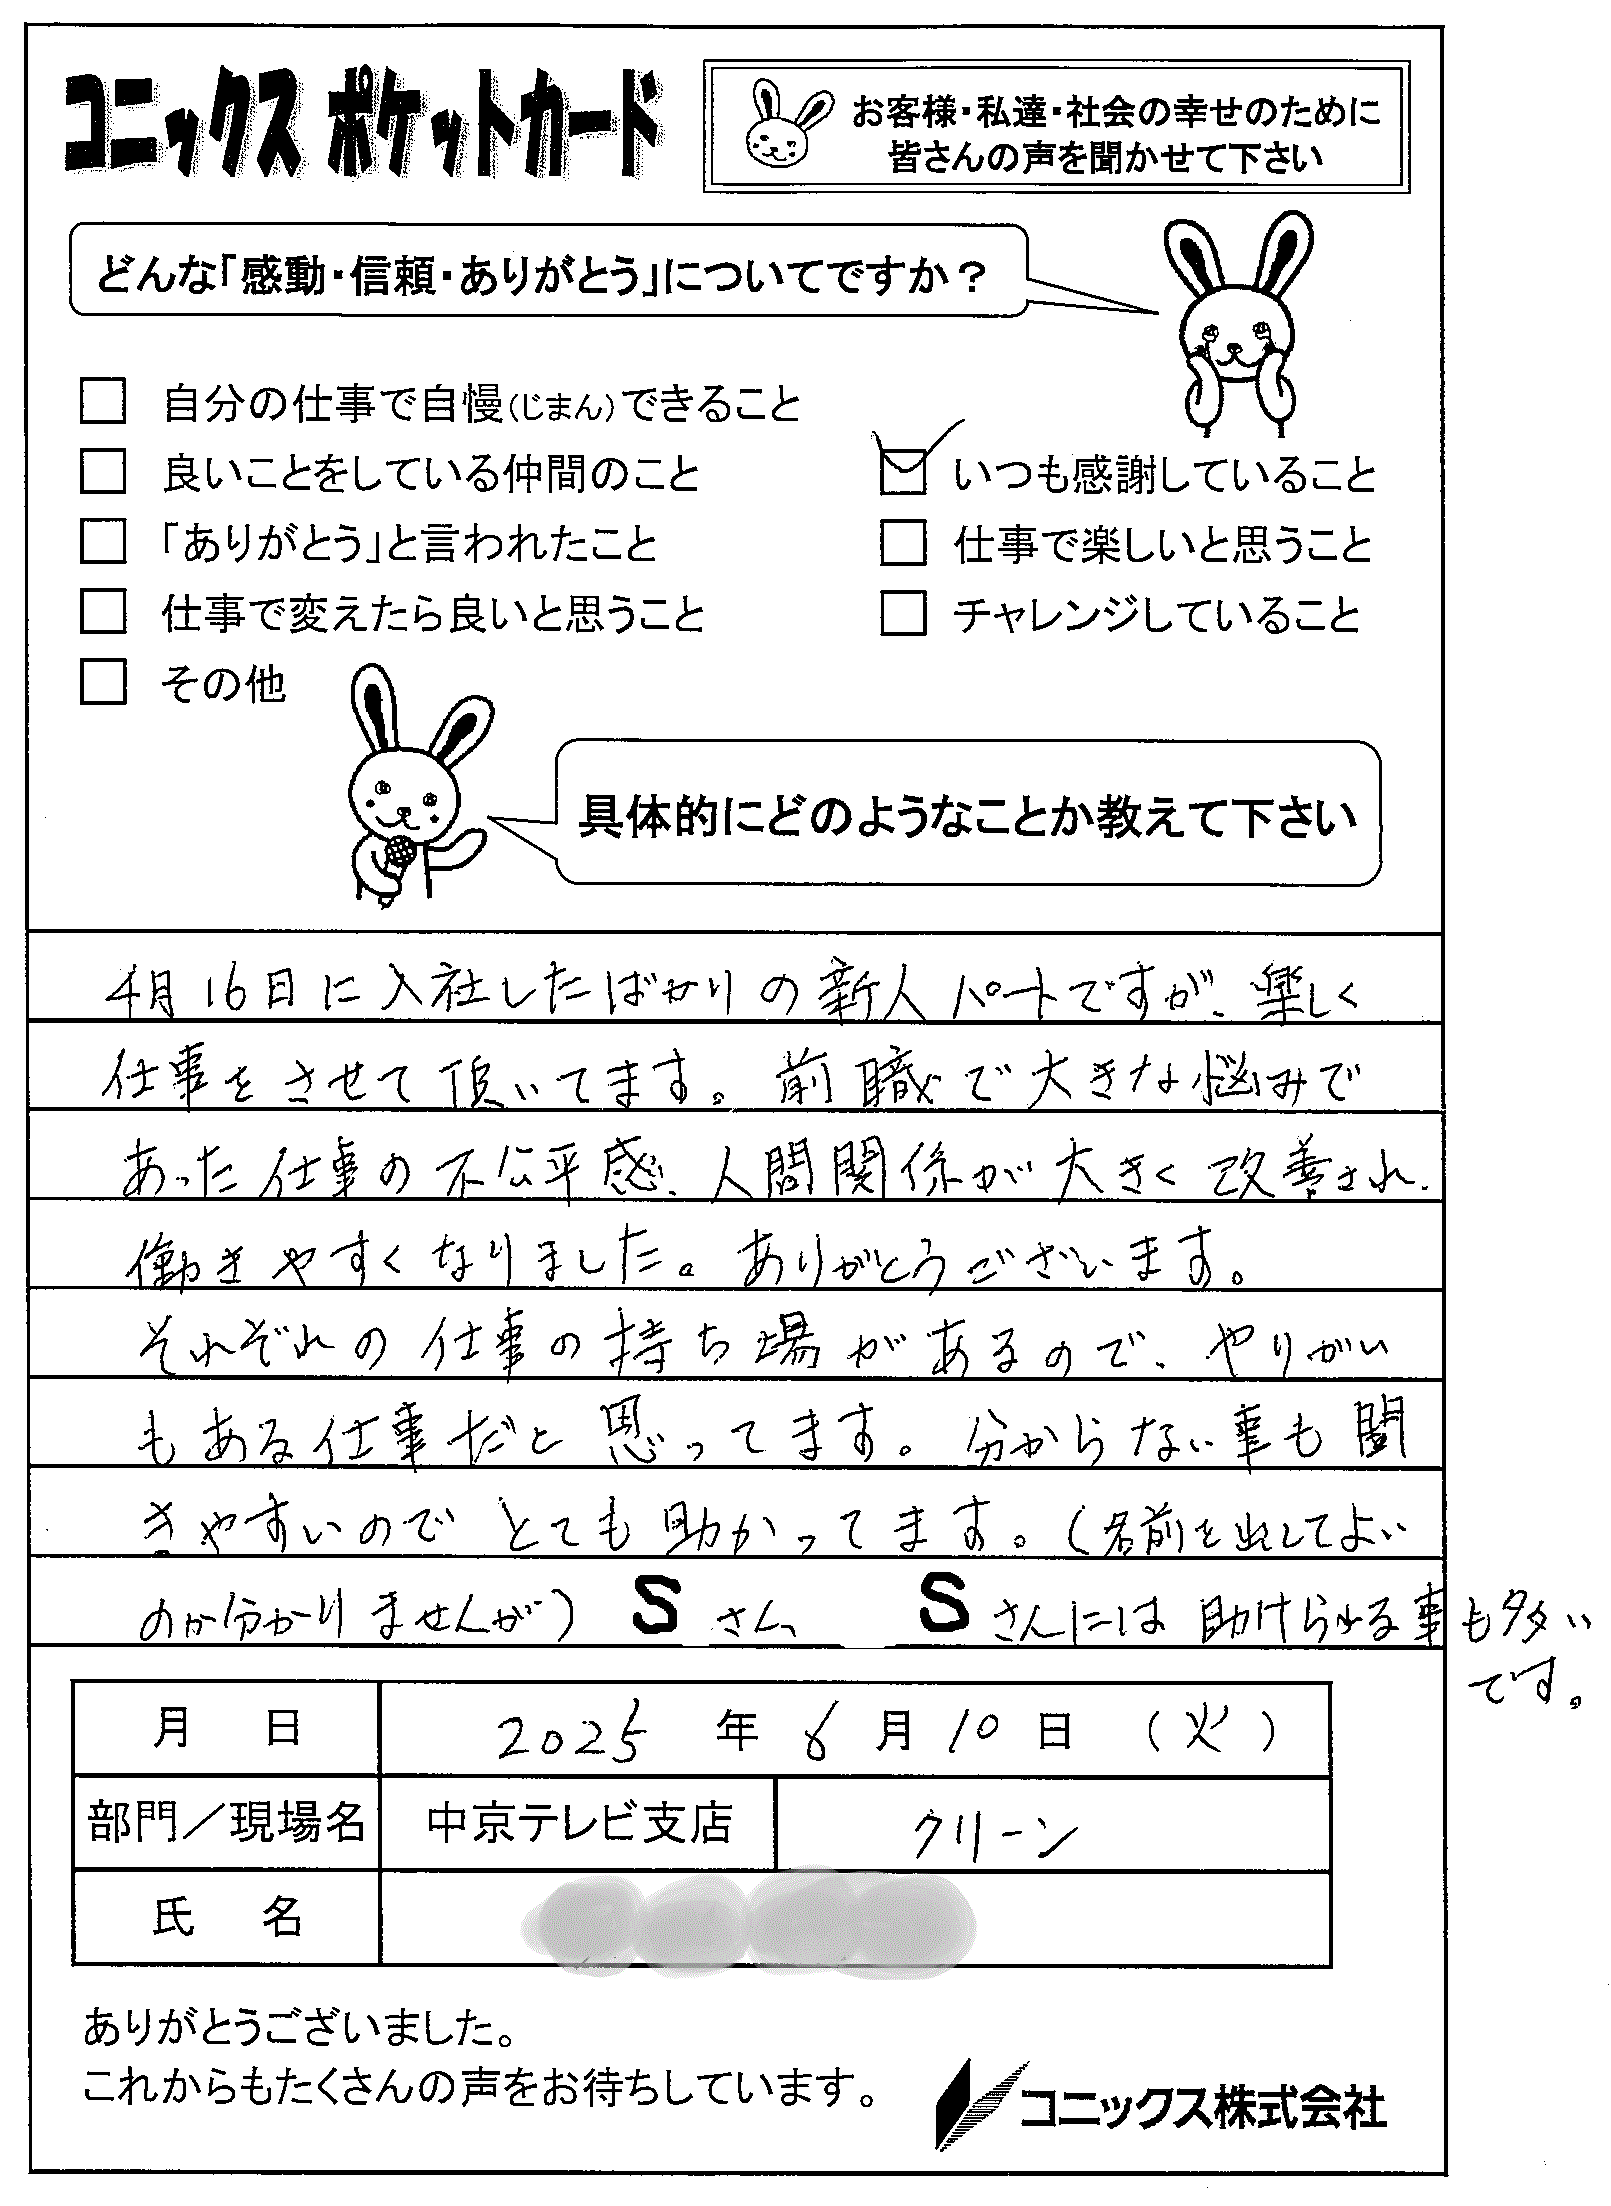 コニックス ポケットカード
お客様・私達・社会の幸せのために
皆さんの声を聞かせて下さい
どんな「感動・信頼・ありがとう」についてですか？
自分の仕事で自慢(じまん)できること
良いことをしている仲間のこと
いつも感謝していること
「ありがとう」と言われたこと
仕事で楽しいと思うこと
仕事で変えたら良いと思うこと
チャレンジしていること
その他
具体的にどのようなことか教えて下さい
4月16日に入社したばかりの新人パートですが、楽しく
仕事をさせて頂いてます。前職で大きな悩みで
あった仕事の不公平感、人間関係が大きく改善され、
働きやすくなりました。ありがとうございます。
それぞれの仕事の持ち場があるので、やりがい
もある仕事だと思ってます。分からない事も聞
きやすいのでとても助かってます。(名前を出してよい
のか分かりませんが) Sさん、 Sさんには助けられる事も多い
です。
月 日 2025 年 6 月 10 日 (火)
部門／現場名 中京テレビ支店 クリーン
氏 名
ありがとうございました。
これからもたくさんの声をお待ちしています。
コニックス株式会社